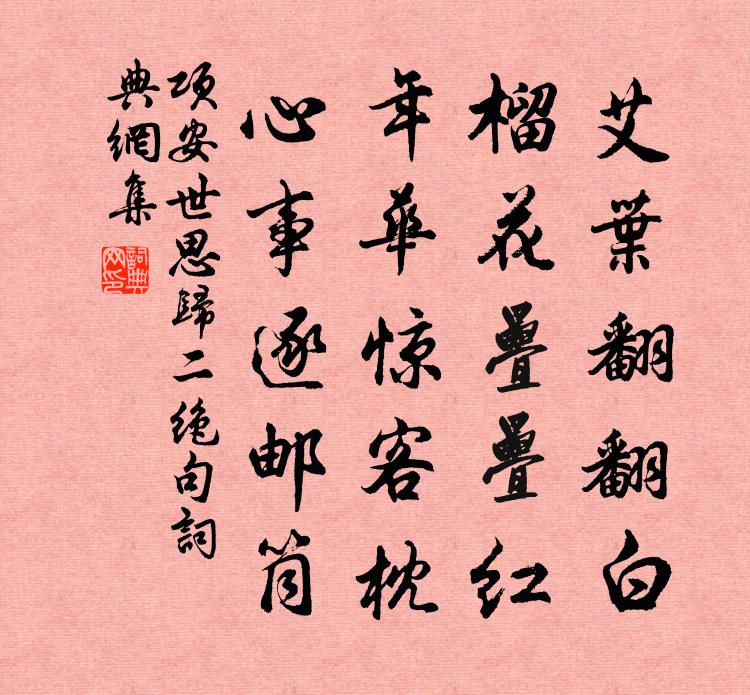 艾葉翻翻白
榴花疊疊紅
年華惊客枕
心事逐邮筒
项安世思歸二绝句詞
典網集
詞典网印